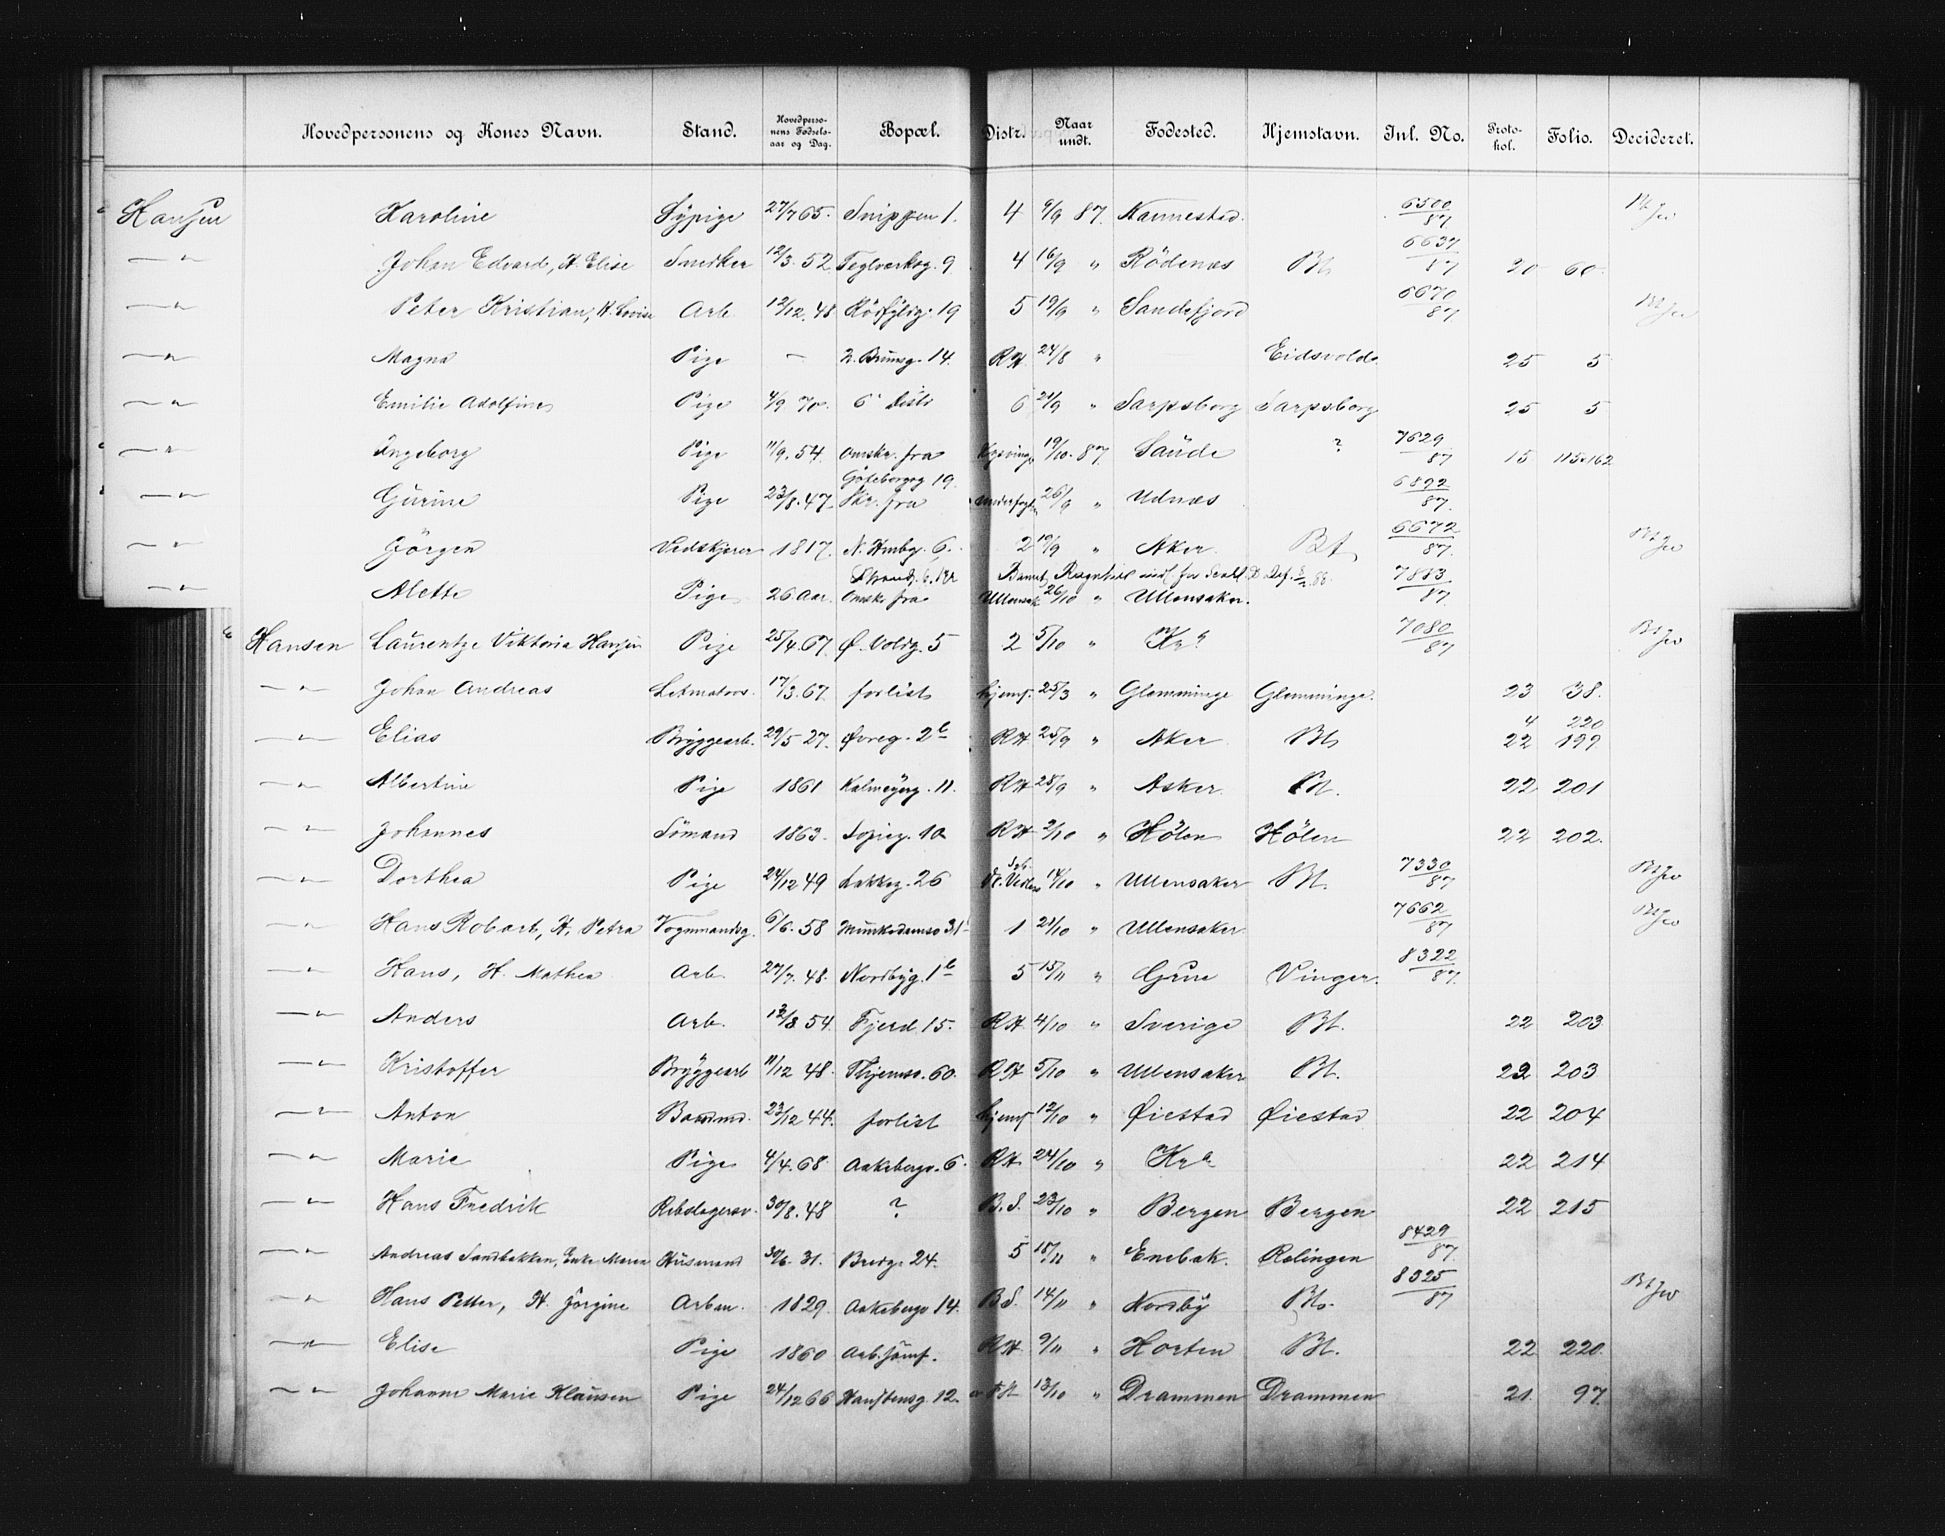 Hovedpersonens og Kones Navn. Stand. Hovedpersonens Fødselsaar og Dag. Bopæl. Distr. Naar undt. Fødested. Hjemstavn. Inl. No. Protokol. Folio. Decideret.
Hansen Karoline Sypige 27/7 65. Snippen 1. 4 9/9 87. Nannestad. 6500/87
—"— Johan Edvard, H. Elise Snedker 12/3. 52 Teglverksg. 9 4 16/9 " Rödenæs Bt 6637/87 20 60.
—"— Peter Kristian, H. Lovise Arb 12/12. 48 19 5 19/9 " Sandefjord 6670/87
—"— Magna Pige — 2. Brunsg. 14. RH. 24/8 " Eidsvold 25 5
—"— Emilie Adolfine Pige 4/9. 70. 6' Distr 6 21/9 " Sarpsborg Sarpsborg 25 5
—"— Ingeborg Pige 11/9. 54. Omskr. fra 19/10. 87 Saude ? 7629/87 15 115 162
—"— Gurine Pige 23/8. 47. Göteborgsg 19. Skr. fra 26/9 " Udnæs 6892/87
—"— Jörgen Vedskjerer 1817. N. Hmbg. 6. 2 19/9 " Aker Bt 6672/87
—"— Alette Pige 26 Aar. Omskr fra Ullensak 26/10 " Ullensaker. 7883/87
Hansen Laurentze Viktoria Hansen Pige 25/4. 67. Ø. Voldg. 5 2 5/10 " Kra 7080/87
—"— Johan Andreas Letmatros. 17/3. 67. forlist hjemf. 25/3 " Glemminge Glemminge. 23 38.
—"— Elias Bryggearb. 29/5 27. Øvreg. 2b RH 25/9 " Aker Bt 4 22 220 199
—"— Albertine Pige 1861 Kalmeyerg. 11. RH 28/9 " Asker Bt. 22 201
—"— Johannes Sömand 1863. 10 RH 2/10 " Hölen Hölen 22 202.
—"— Dorthea Pige 24/12 49 Lakkeg. 26 14/10 " Ullensaker Bt. 7330/87
—"— Hans Robert, H. Petra Vognmandsg. 6/6. 58 Munkedamsv 31 1 21/10 " Ullensaker 7662/87
—"— Hans, H. Mathea Arb. 27/7. 48. Nordbyg. 1b 5 15/11 " Grue Vinger. 8322/87
—"— Anders Arb. 12/8 54 Fjerd. 15. RH. 4/10 " Sverige Bt. 22 203
—"— Kristoffer Bryggearb 11/12 48. 60. RH 5/10 " Ullensaker Bt. 22 203
—"— Anton 23/12 44. forlist hjemf 12/10 " Øiestad Øiestad 22 204
—"— Marie Pige 4/4. 68. Aakebergv. 6. RH 24/10 " Kra 22 214
—"— Hans Fredrik Rebslagersv. 30/8. 48 ? B.S. 23/10 " Bergen Bergen 22 215
—"— Andreas Sandbakken, Enke Maren Husmand 30/6. 31. Bredg. 24. 5 18/11 " Enebak. Rælingen 8429/87
—"— Hans Petter, H. Jörgine Arbm. 1829. Aakebergv 14. B.S. 14/11 " Nordby Bt. 8325/87
—"— Elise Pige 1860 RH. 9/11 " Horten Bt. 22 220.
—"— Johanne Marie Klausen Pige 24/12 66 12. 13/10 " Drammen Drammen 21 97.